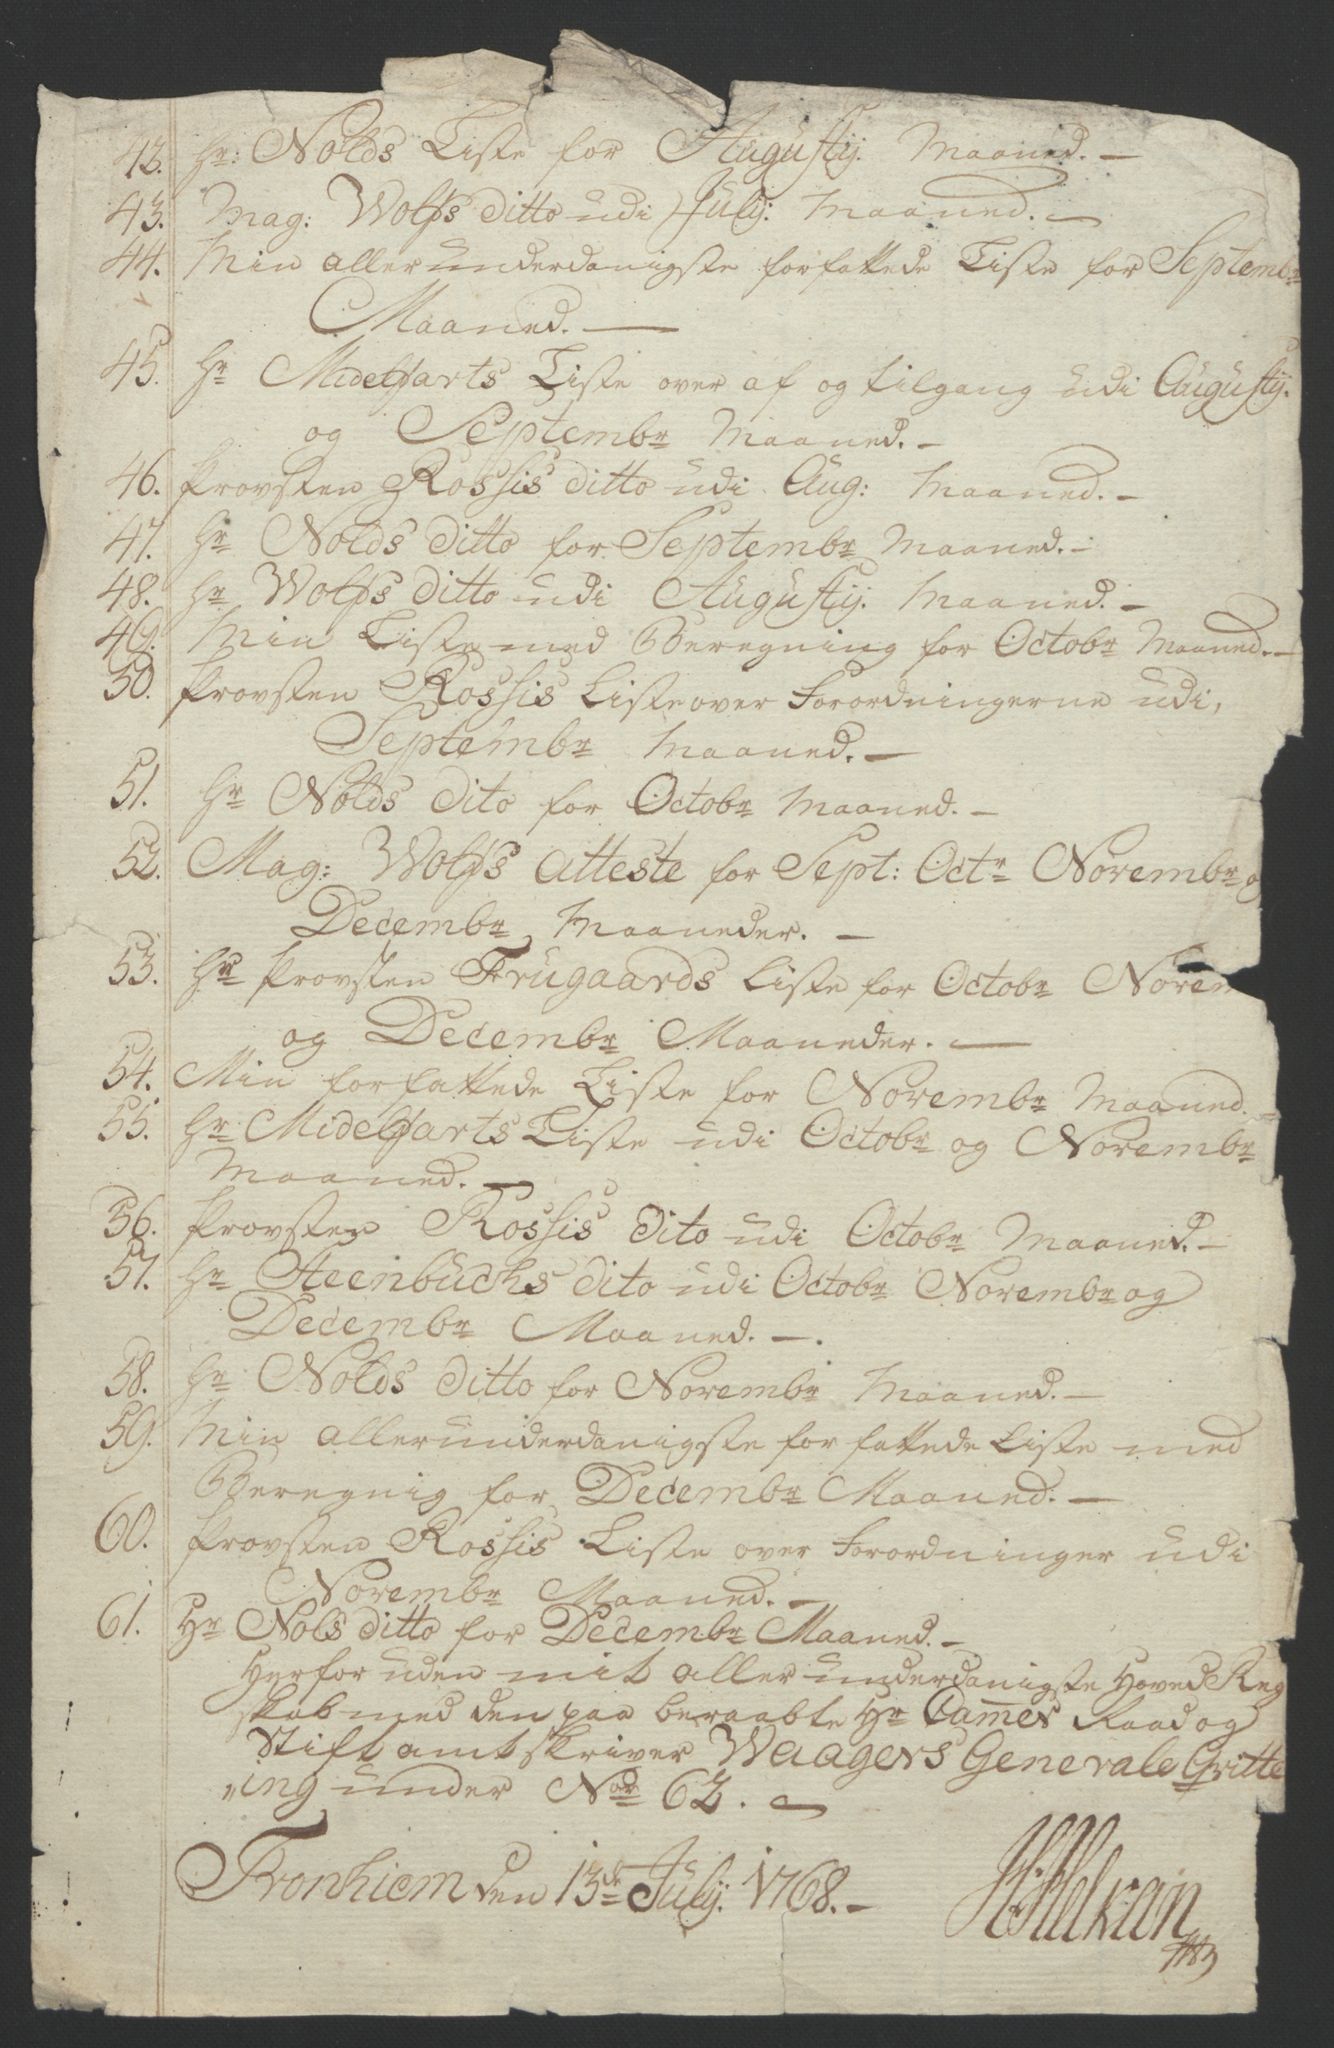 42. Hr: Nolds Liste for Augustij. Maaned. —
43. Mag: Wolfs ditto udi July: Maaned. —
44. Min allerunderdanigste forfattede Liste for Septembr
Maaned. —
45. Hr Midelfarts Liste over af og tilgang udi Augustij.
og Septembr Maaned. —
46. Provsten Rossis ditto udi Aug: Maaned. —
47. Hr Nolds ditto for Septembr Maaned. —
48. Hr Wolfs ditto udi Augustij. Maaned. —
49. Min Liste med Beregning for Octobr Maaned. —
50. Provsten Rossis Liste over Forordningerne udi,
Septembr Maaned. —
51. Hr Nolds dito for Octobr Maaned. —
52. Mag: Wolfs Atteste for Sept: Octr Novembr og
Decembr Maaneder. —
53. Hr Provsten Frugaards Liste for Octobr Novem
og Decembr Maaneder. —
54. Min forfattede Liste for Novembr Maaned. —
55. Hr Midelfarts Liste udi Octobr og Novembr
Maaned. —
56. Provsten Rossis dito udi Octobr Maaned. —
57. Hr Steenbuchs dito udi Octobr Novembr og
Decembr Maaned. —.
58. Hr Nolds ditto for Novembr Maaned. —
59. Min allerunderdanigste forfattede Liste med
Beregnig for Decembr Maaned. —
60. Provsten Rossis Liste over Forordninger udi
Novembr Maaned. —
61. Hr Nols ditto for Decembr Maaned. —
Herforuden mit allerunderdanigste Hoved Reg
skab med den paa beraabte Hr Cam̄er Raad og
Stiftamtskriver Waagers Generale Qvitte
"ing under No 62. —
Tronhiem den 13de July. 1768. —